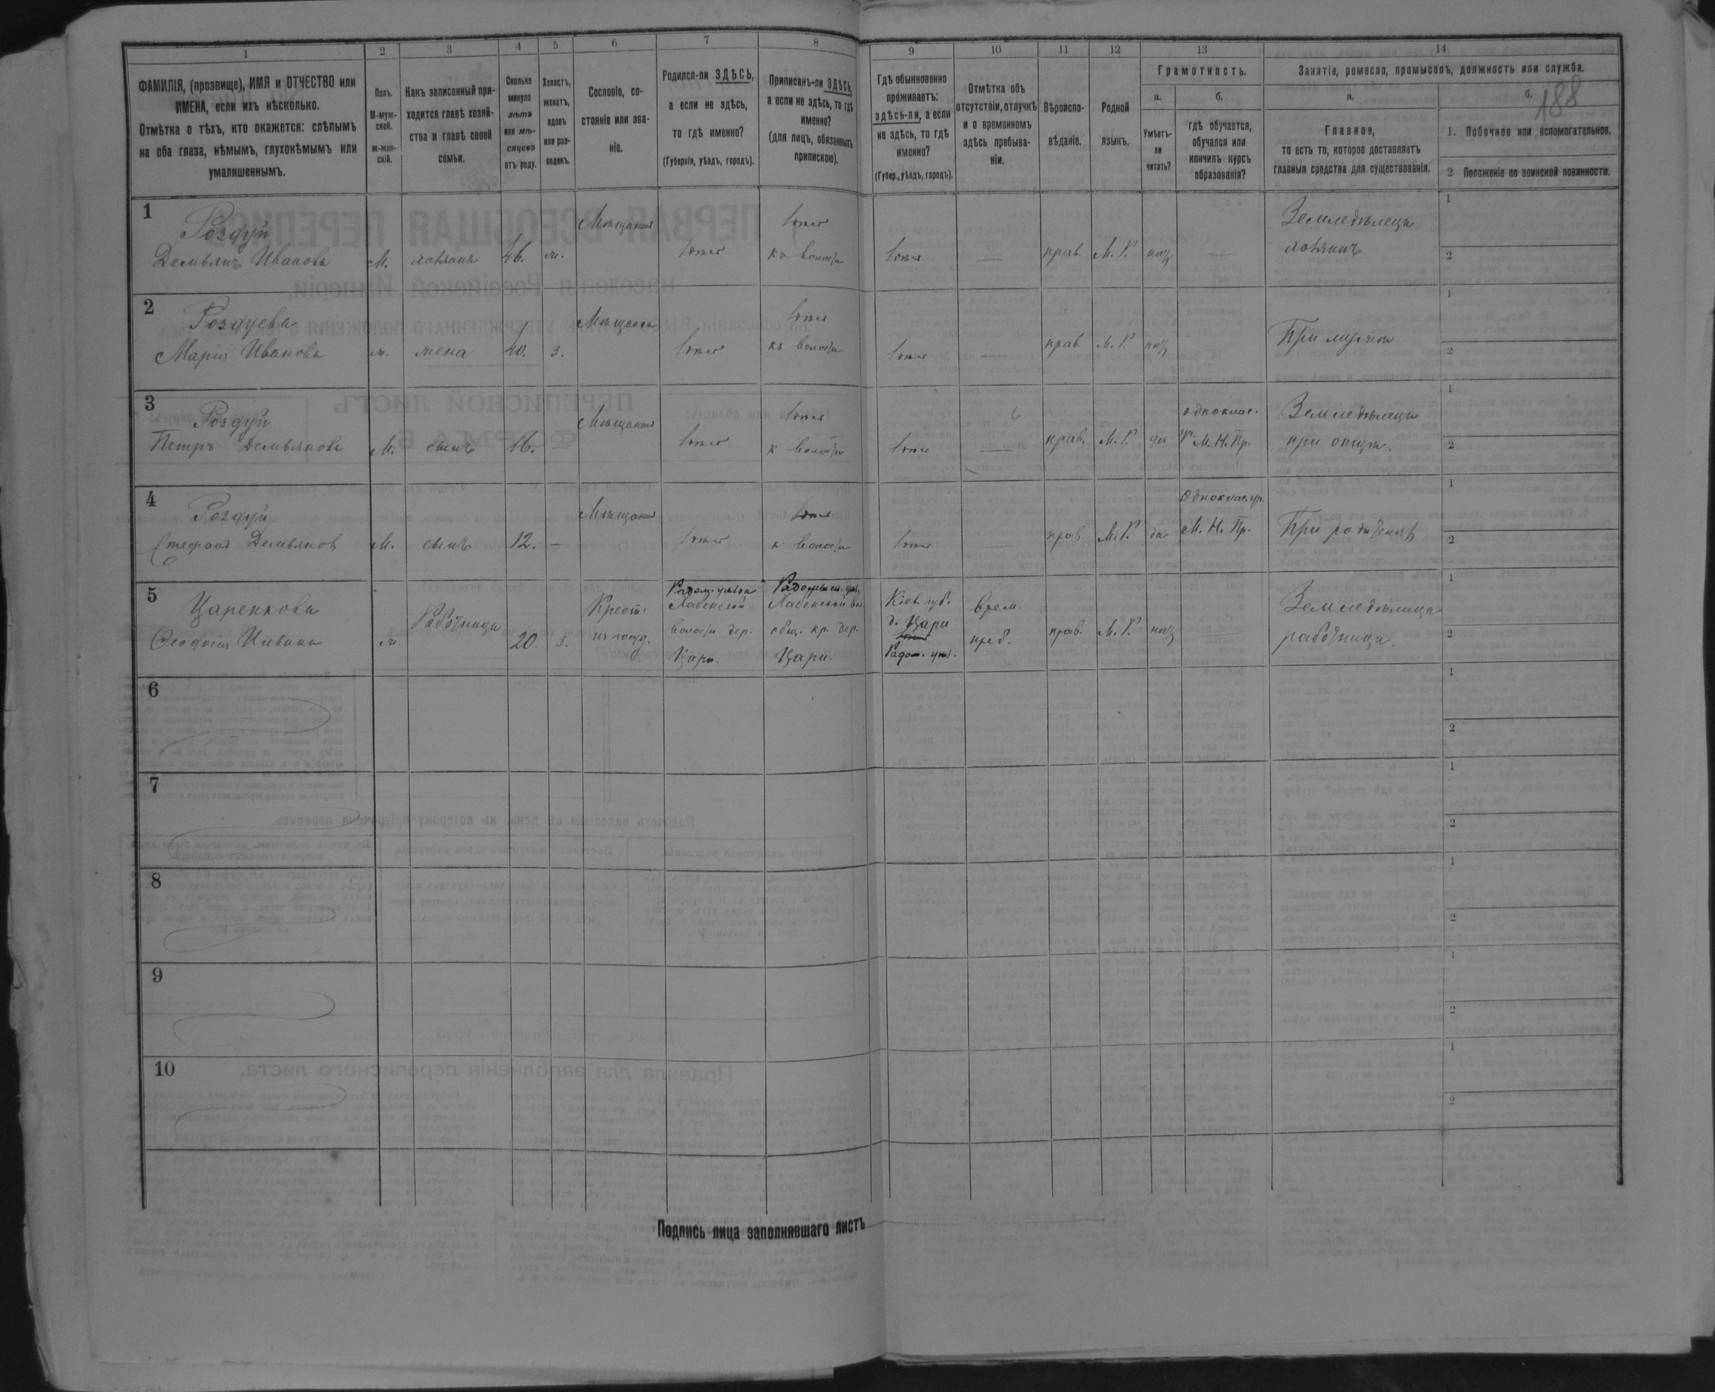 1 2 3 4 5 6 7 8 9 10 11 12 13 14
ФАМИЛІЯ, (прозвище), ИМЯ и ОТЧЕСТВО или
ИМЕНА, если ихъ нѣсколько.
Отмѣтка о тѣхъ, кто окажется: слѣпымъ
на оба глаза, нѣмымъ, глухонѣмымъ или
умалишеннымъ.
Полъ.
М-муж-
ской.
ж-жен-
скій.
Какъ записанный при-
ходится главѣ хозяй-
ства и главѣ своей
семьи.
Сколько
минуло
лѣтъ
или мѣ-
сяцевъ
отъ роду.
Холостъ,
женатъ,
вдовъ
или раз-
веденъ.
Сословіе, со-
стояніе или зва-
ніе.
Родился-ли ЗДѢСЬ,
а если не здѣсь,
то гдѣ именно?
(Губернія, уѣздъ, городъ).
Приписанъ-ли ЗДѢСЬ,
а если не здѣсь, то гдѣ
именно?
(для лицъ, обязанныхъ
припискою).
Гдѣ обыкновенно
проживаетъ:
здѣсь-ли, а если
не здѣсь, то гдѣ
именно?
(Губер., уѣздъ, городъ).
Отмѣтка объ
отсутствіи, отлучкѣ
и о временномъ
здѣсь пребыва-
ніи.
Вѣроиспо-
вѣданіе.
Родной
языкъ.
Грамотность.
а.
Умѣетъ-
ли
читать?
б.
гдѣ обучается,
обучался или
кончилъ курсъ
образованія?
Занятіе, ремесло, промыселъ, должность или служба.
а.
Главное,
то есть то, которое доставляетъ
главныя средства для существованія.
б.
188
1. Побочное или вспомогательное.
2 Положеніе по воинской повинности.
1
Роздуй
Демьянъ Иванова
М. хозяинъ 46. ж.
Мѣщанинъ
къ волости
прав М. Р. нѣтъ —
Земледѣлецъ
хозяинъ
1
2
2
Роздуева
Марія Иванова
ж. жена 40. з.
къ волости
— прав М. Р. нѣтъ
При мужѣ
1
2
3
Роздуй
Петръ Демьянова
М. сынъ 16. —
Мѣщанинъ
к волости
— прав. М. Р. да
однокласс.
М. Н. Пр.
Земледѣлецъ
при отцѣ.
1
2
4
Роздуй
Стефанъ Демьянов
М. сынъ 12. —
Мѣщанинъ
к волости
— прав М. Р. да
Однокласс. уч.
М. Н. Пр.
При родителях
1
2
5
Царенкова
Феодосія
ж. Работница 20. з.
Крест.
Радом. уѣзда
волости дер.
Цари.
общ. кр. дер.
Цари.
Кіев. губ.
д. Цари
Радом. уѣз.
Врем.
преб.
прав. М. Р. нѣтъ —
Земледѣлица
работница.
1
2
6
1
2
7
1
2
8
1
2
9
1
2
10
1
2
Подпись лица заполнявшаго листъ